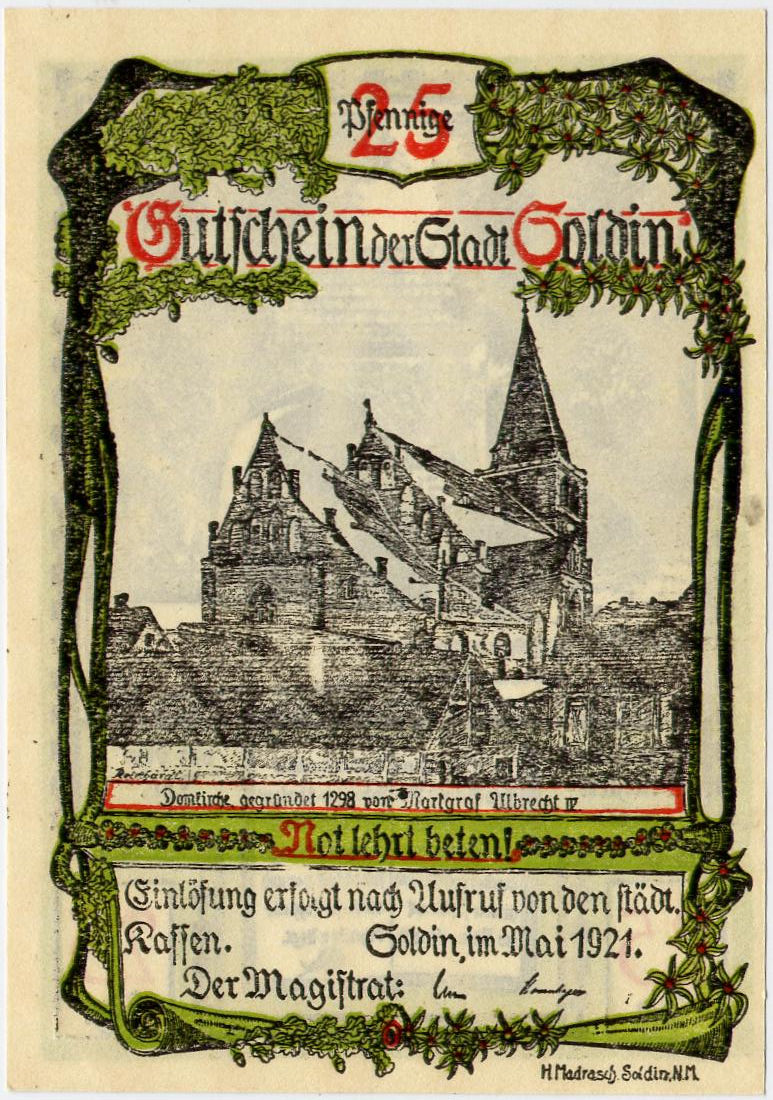 25
Pfennige
Gutschein der Stadt Soldin
Domkirche, gegründet 1298 vom Markgraf Albrecht IV
Not lehrt beten!
Einlösung erfolgt nach Aufruf von den städt.
Kassen. Soldin, im Mai 1921.
Der Magistrat:
H. Madrasch, Soldin, N.M.